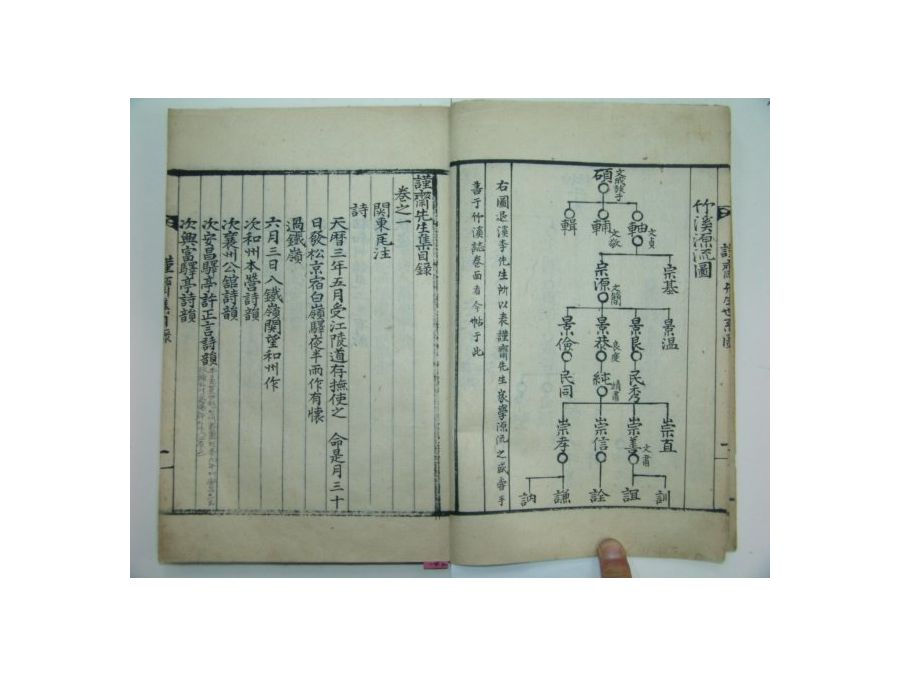 竹溪源流圖
碩
文成公子
軸
文貞
輔
文敬
輯
宗基
宗源
文簡
景温
景良
景恭
良度
景儉
民秀
純
靖肅
民同
崇直
崇善
文肅
崇信
崇孝
訓
誼
詮
謙
訥
右圖退溪李先生所以表謹齋先生家學源流之盛而手
書于竹溪誌卷面者今帖于此
謹齋先生集目錄
卷之一
關東瓦注
詩
天曆三年五月受江陵道存撫使之 命是月三十
日發松京宿白嶺驛夜半雨作有懷
過鐵嶺
六月三日入鐵嶺關望和州作
次和州本營詩韻
次襄州公舘詩韻
次安昌驛亭許正言詩韻
次興富驛亭詩韻
謹齋集目錄